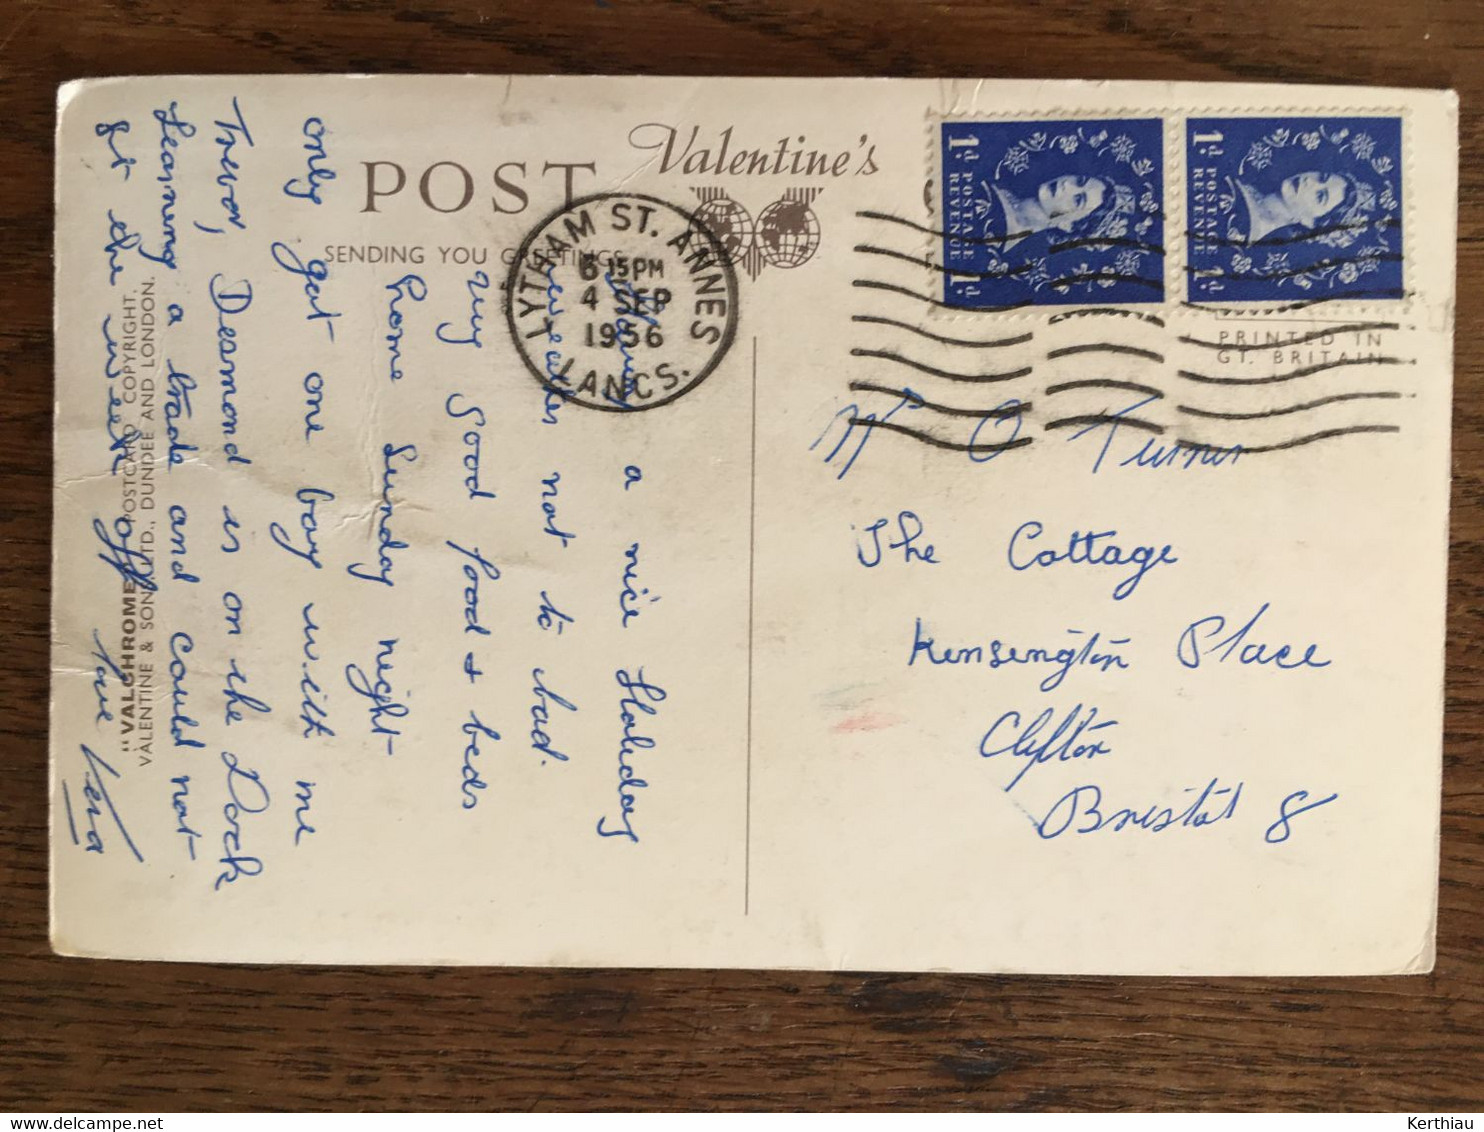 Valentine's
POST
SENDING YOU GREETINGS
LYTHAM ST. ANNES
6 15PM
4 SEP
1956
LANCS.
1d POSTAGE REVENUE 1d
1d POSTAGE REVENUE 1d
PRINTED IN
GT. BRITAIN
Having a nice Holiday
weather not to bad.
very good food & beds
home Sunday night
only got one boy with me
Trevor, Desmond is on the Dock
Learning a trade and could not
get the week off
love Vera
"VALCHROME" POSTCARD COPYRIGHT,
VALENTINE & SONS, LTD., DUNDEE AND LONDON.
Mr O Turner
The Cottage
Kensington Place
Clifton
Bristol 8
Kerthiau